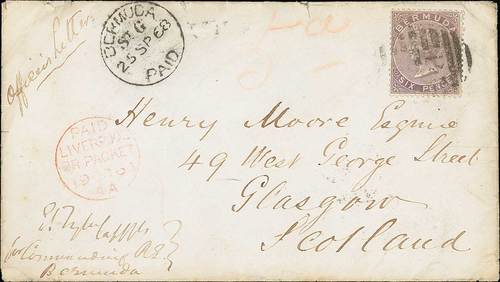 Officer's Letter
BERMUDA
ST. G
25 SP 68
PAID
BERMUDA
SIX PENCE
PAID
LIVERPOOL
BR. PACKET
Henry Moore Esquire
49 West George Street
Glasgow
Scotland
Commanding R.E.
Bermuda